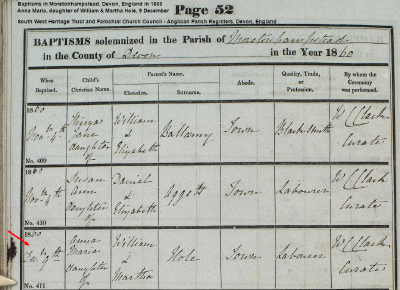 Baptisms in Moretonhampstead, Devon, England in 1860
Anna Maria, daughter of William & Martha Hole, 9 December
South West Heritage Trust and Parochial Church Council - Anglican Parish Registers, Devon, England
Page 52
BAPTISMS solemnized in the Parish of Moretonhampstead
in the County of Devon in the Year 1860
When Baptized. Child's Christian Name. Parent's Name. Christian. Surname. Abode. Quality, Trade, or Profession. By whom the Ceremony was performed.
1860
Novr 4th
No. 409
Jane
daughter
of
William
&
Elizabeth
Bellamy
Town
Blacksmith
W C Clack
Curate
1860
Novr 4th
No. 410
Susan
Ann
daughter
of
Daniel
&
Elizabeth
Aggett
Town
Labourer
W C Clack
Curate
1860
Decr 9th
No. 411
Anna
Maria
daughter
of
William
&
Martha
Hole
Town
Labourer
W C Clack
Curate